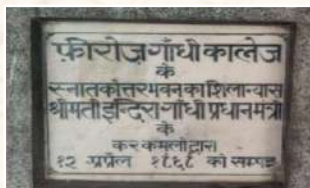 फ़ीरोज़ गाँधी कालेज
के
स्नातकोत्तर भवन का शिलान्यास
श्रीमती इन्दिरा गाँधी प्रधानमंत्री
के
कर कमलों द्वारा
१२ अप्रैल १९६९ को सम्पन्न